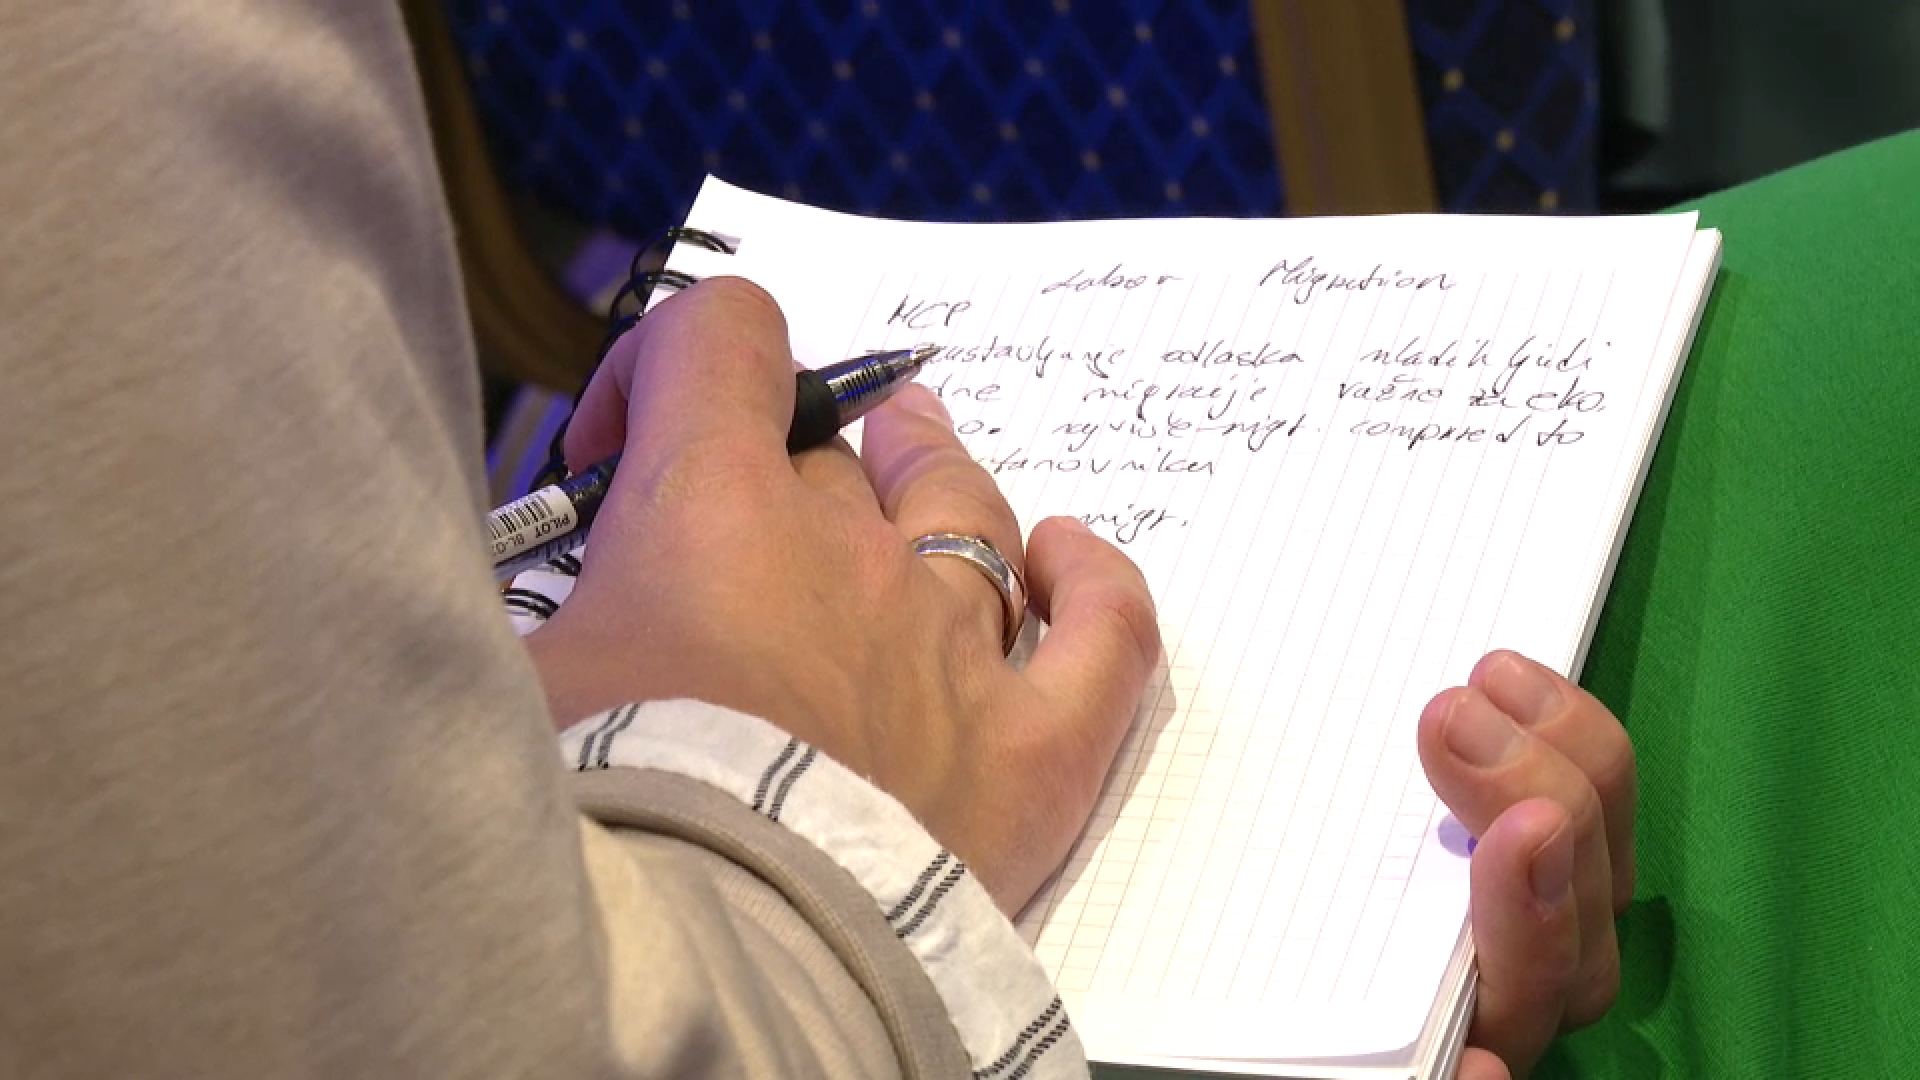 Labor Migration
MCP
zaustavljanje odlaska mladih ljudi
migracije važno za eko.
najviše migr. compared to
stanovniku
migr.
PILOT BL-G